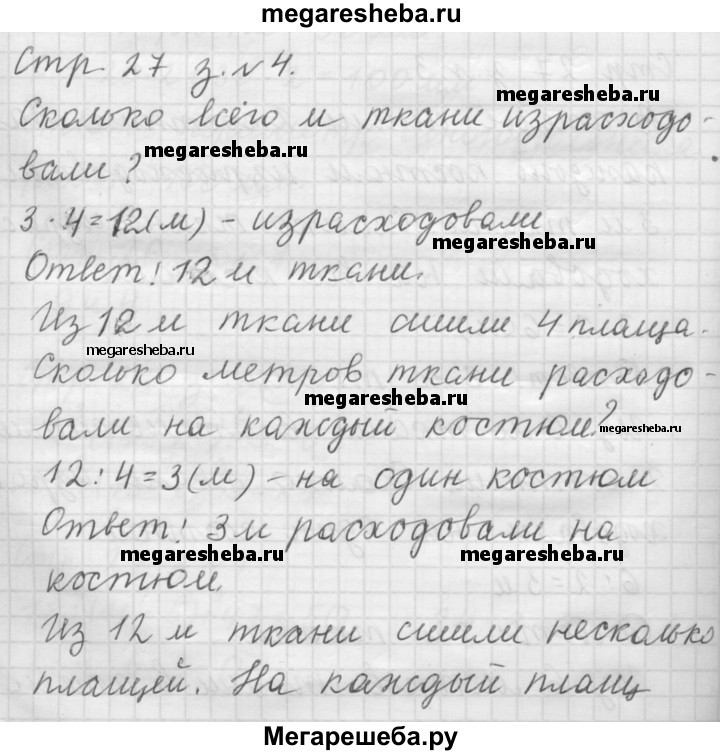 megaresheba.ru
Стр. 27 з. № 4.
megaresheba.ru
Сколько всего м ткани израсходо-
megaresheba.ru
вали?
3 · 4 = 12 (м) - израсходовали
megaresheba.ru
Ответ: 12 м ткани.
Из 12 м ткани сшили 4 плаща.
megaresheba.ru
Сколько метров ткани расходо-
megaresheba.ru
вали на каждый костюм?
megaresheba.ru
12 : 4 = 3 (м) - на один костюм
Ответ: 3 м расходовали на
megaresheba.ru megaresheba.ru
костюм.
Из 12 м ткани сшили несколько
плащей. На каждый плащ
Мегарешеба.ру